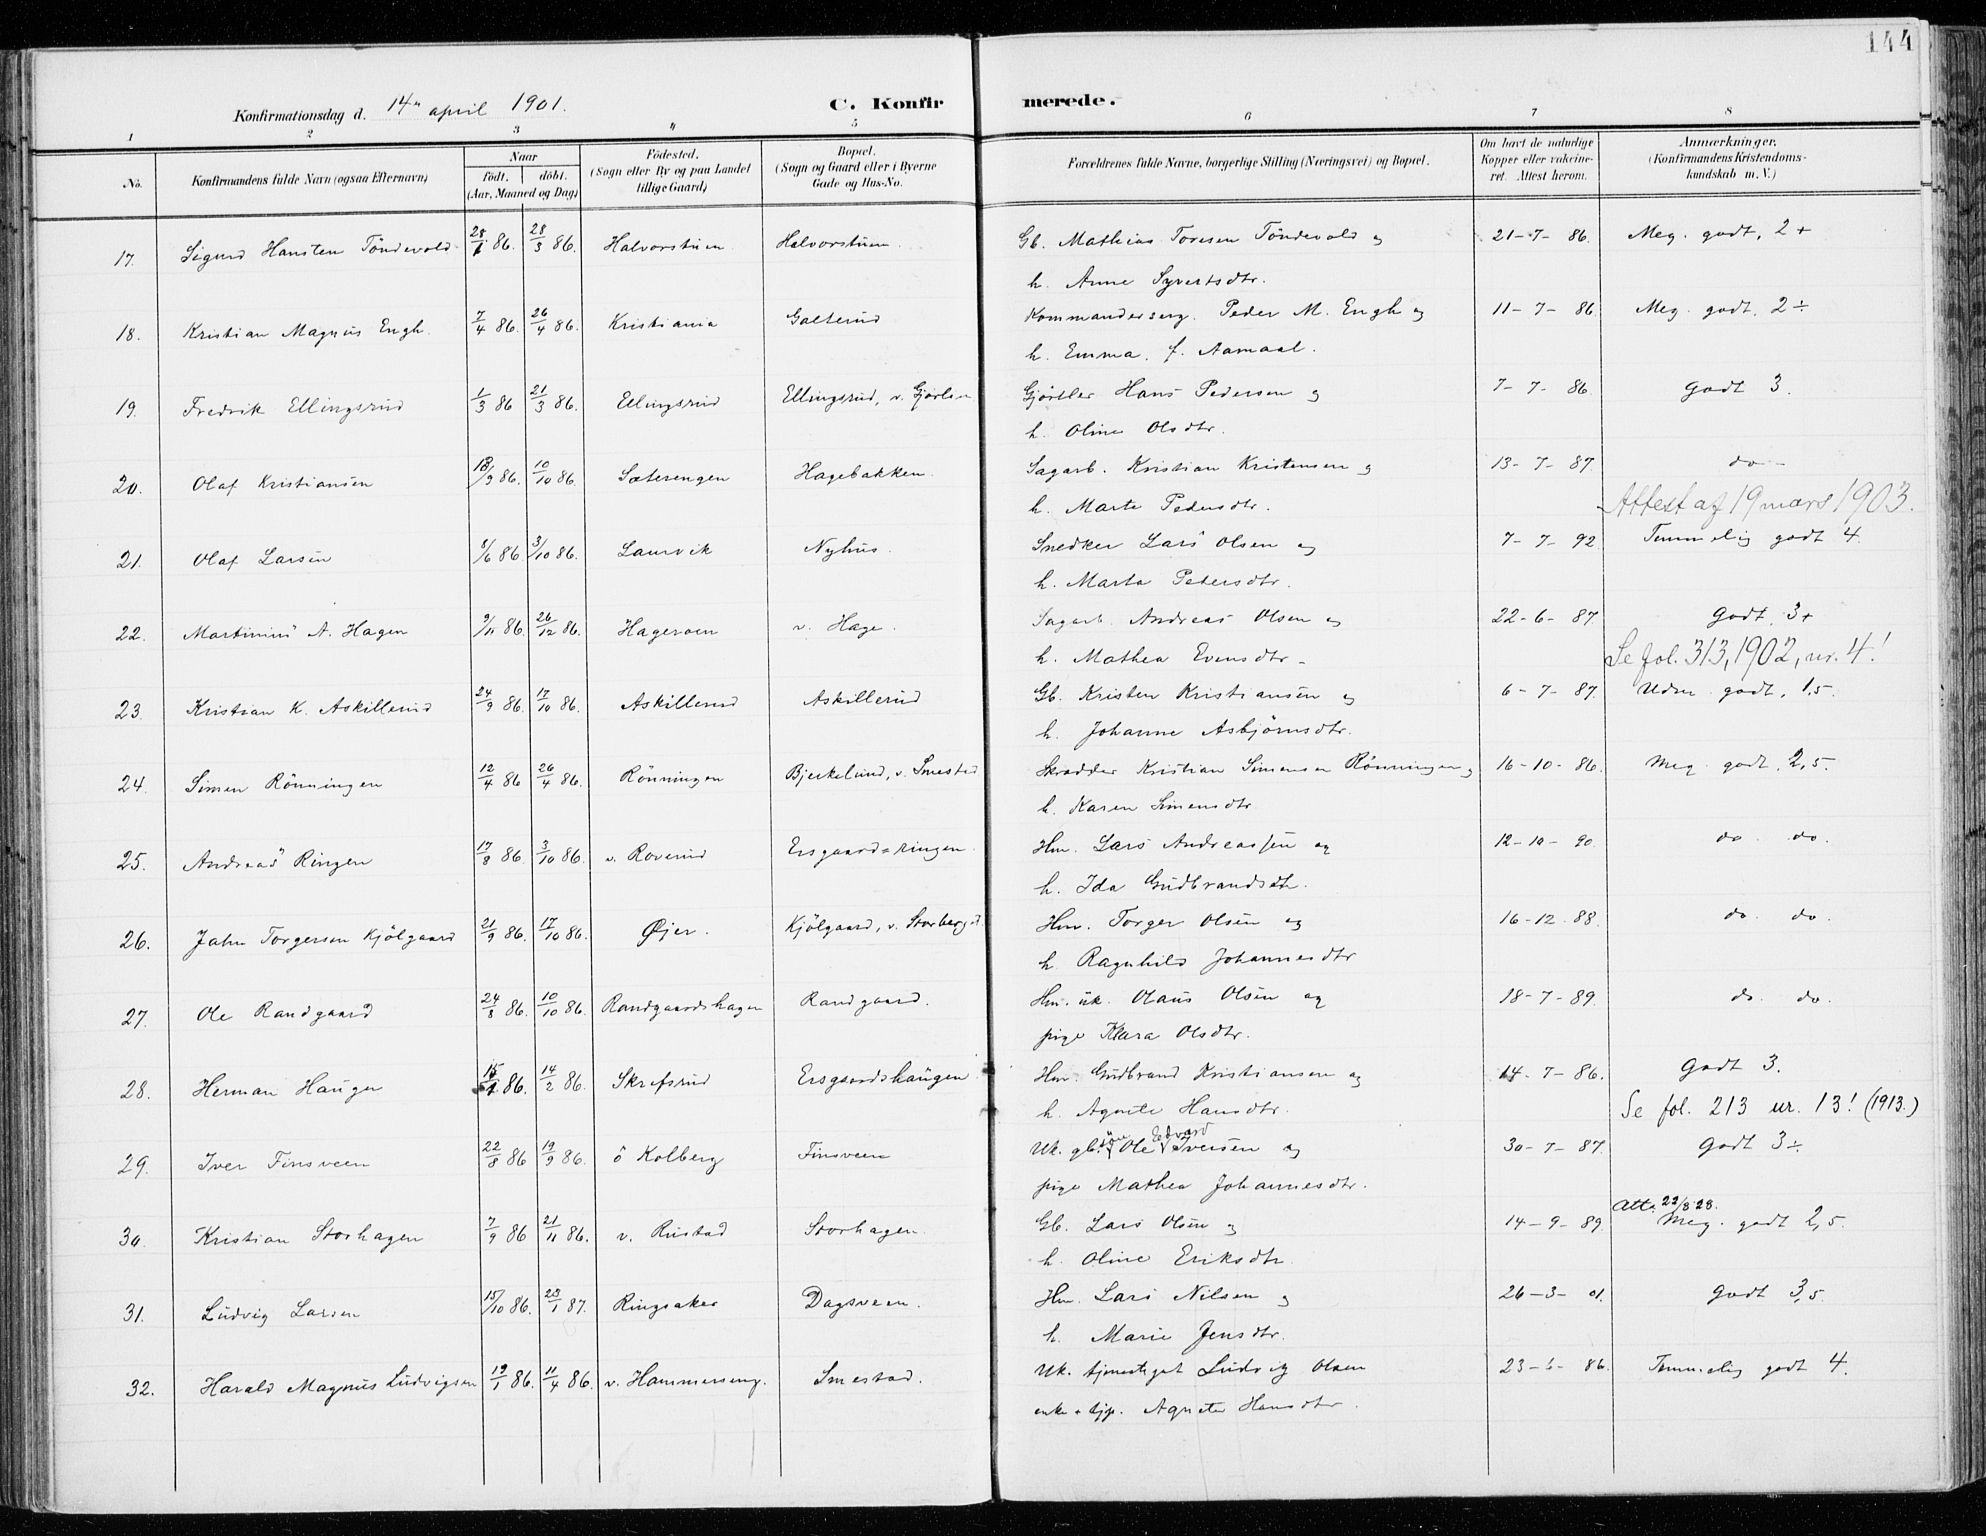 144
Konfirmationsdag d. 14de april 1901. C. Konfirmerede.
1 2 3 4 5 6 7 8
No. Konfirmandens fulde Navn (ogsaa Efternavn) Naar født. døbt. (Aar, Maaned og Dag) Födested. (Sogn eller By og paa Landet tillige Gaard) Bopæl. (Sogn og Gaard eller i Byerne Gade og Hus-No. Forældrenes fulde Navne, borgerlige Stilling (Næringsvei) og Bopæl. Om havt de naturlige Kopper eller vakcineret. Attest herom. Anmærkninger. (Konfirmandens Kristendomskundskab m. V.)
17. Sigurd Hansten Töndevold 28/1 86. 28/3 86. Halvorstuen Halvorstuen. Gb. Mathias Toresen Töndevold og 21-7-86. Meg. godt, 2+
h. Anne Syvertsdtr.
18. Kristian Magnus Engh. 7/4 86. 26/4 86. Kristiania Galterud Kommanderserg. Peder M. Engh og 11-7-86 Meg. godt, 2÷
h. Emma f. Aamaal.
19. Fredrik Ellingsrud 1/3 86 21/3 86. Ellingsrud Ellingsrud, v. Gjörlien Gjörtler Hans Pedersen og 7-7-86. Godt 3.
h. Oline Olsdtr.
20. Olaf Kristiansen 18/9 86. 10/10 86. Sæterengen Hagebakken. Sagarb. Kristian Kristensen og 13-7-87. do -
h. Marte Pedersdtr. Attest af 19 mars 1903.
21. Olaf Larsen 8/6 86 3/10 86. Laurvik Nyhus. Snedker Lars Olsen og 7-7-92 Temmelig godt 4.
h. Marta Pedersdtr.
22. Martinius A. Hagen 9/11 86. 26/12 86. Hageroen v. Hage. Sagarb. Andreas Olsen og 22-6-87 Godt, 3+
h. Mathea Evensdtr. Se fol. 313, 1902, nr. 4!
23. Kristian K. Askillerud 24/9 86. 17/10 86. Askillerud Askillerud Gb. Kristen Kristiansen og 6-7-87. Udm. godt, 1,5.
h. Johanne Asbjörnsdtr.
24. Simen Rönningen 12/4 86 26/4 86. Rönningen Bjerkelund, v. Smestad Skrædder Kristian Simensen Rönningen og 16-10-86. Meg. godt, 2,5.
h. Karen Simensdtr.
25. Andreas Ringen 17/8 86. 3/10 86. v. Roverud Ersgaard=ringen. Hm. Lars Andreassen og 12-10-90. do do.
h. Ida Gudbrandsdtr.
26. Jahn Torgersen Kjölgaard 21/9 86. 17/10 86. Øjer. Kjölgaard, v. Storberget Hm. Torger Olsen og 16-12-88. do. do.
h. Ragnhild Johannesdtr
27. Ole Randgaard 24/8 86. 10/10 86. Randgaardshagen Randgaard. Hm. uk. Olaus Olsen og 18-7-89. do. do.
pige Klara Olsdtr.
28. Herman Haugen 15/1 86. 14/2 86. Skrefsrud Ersgaardshaugen Hm. Gudbrand Kristiansen og 14-7-86. Godt 3.
h. Agnete Hansdtr. Se fol. 213 nr. 13! (1913.)
29. Iver Finsveen 22/8 86 19/9 86. ö Kolberg Finsveen Uk. gb.sön Ole Edvard Iversen og 30-7-87. Godt 3÷.
pige Mathea Johannesdtr. Att. 22/8 28.
30. Kristian Storhagen 7/9 86 21/11 86. v. Rustad Storhagen. Gb. Lars Olsen og 14-9-89. Meg. godt 2,5.
h. Oline Eriksdtr.
31. Ludvig Larsen 15/10 86. 23/1 87. Ringsaker Dagsveen. Hm. Lars Nilsen og 26-3-01. Godt 3,5.
h. Marie Jensdtr.
32. Harald Magnus Ludvigsen 19/1 86. 11/4 86. v. Hammerseng. Smestad. Uk. tjenestegut Ludvig Olsen 23-6-86. Temmelig godt 4.
enke + tjp. Agnete Hansdtr.